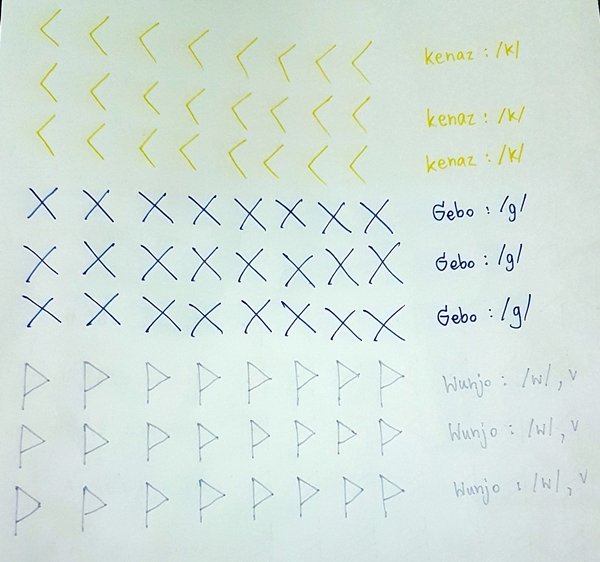 ᚲ ᚲ ᚲ ᚲ ᚲ ᚲ ᚲ ᚲ kenaz : /k/
ᚲ ᚲ ᚲ ᚲ ᚲ ᚲ ᚲ ᚲ kenaz : /k/
ᚲ ᚲ ᚲ ᚲ ᚲ ᚲ ᚲ ᚲ kenaz : /k/
ᚷ ᚷ ᚷ ᚷ ᚷ ᚷ ᚷ ᚷ Gebo : /g/
ᚷ ᚷ ᚷ ᚷ ᚷ ᚷ ᚷ ᚷ Gebo : /g/
ᚷ ᚷ ᚷ ᚷ ᚷ ᚷ ᚷ ᚷ Gebo : /g/
ᚹ ᚹ ᚹ ᚹ ᚹ ᚹ ᚹ ᚹ Wunjo : /w/, v
ᚹ ᚹ ᚹ ᚹ ᚹ ᚹ ᚹ ᚹ Wunjo : /w/, v
ᚹ ᚹ ᚹ ᚹ ᚹ ᚹ ᚹ ᚹ Wunjo : /w/, v